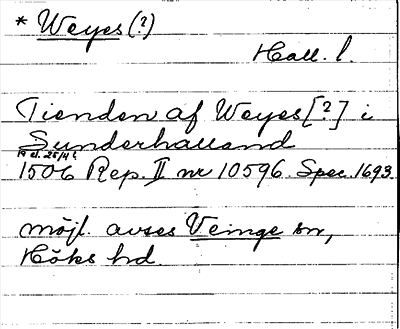 * Weyes (?)
Hall. l.
Tienden af Weyes [?] i
Sunderhalland
19 el. 25/4
1506 Rep. II nr 10596. Spec. 1693.
möjl. avses Veinge sn,
Höks hd.